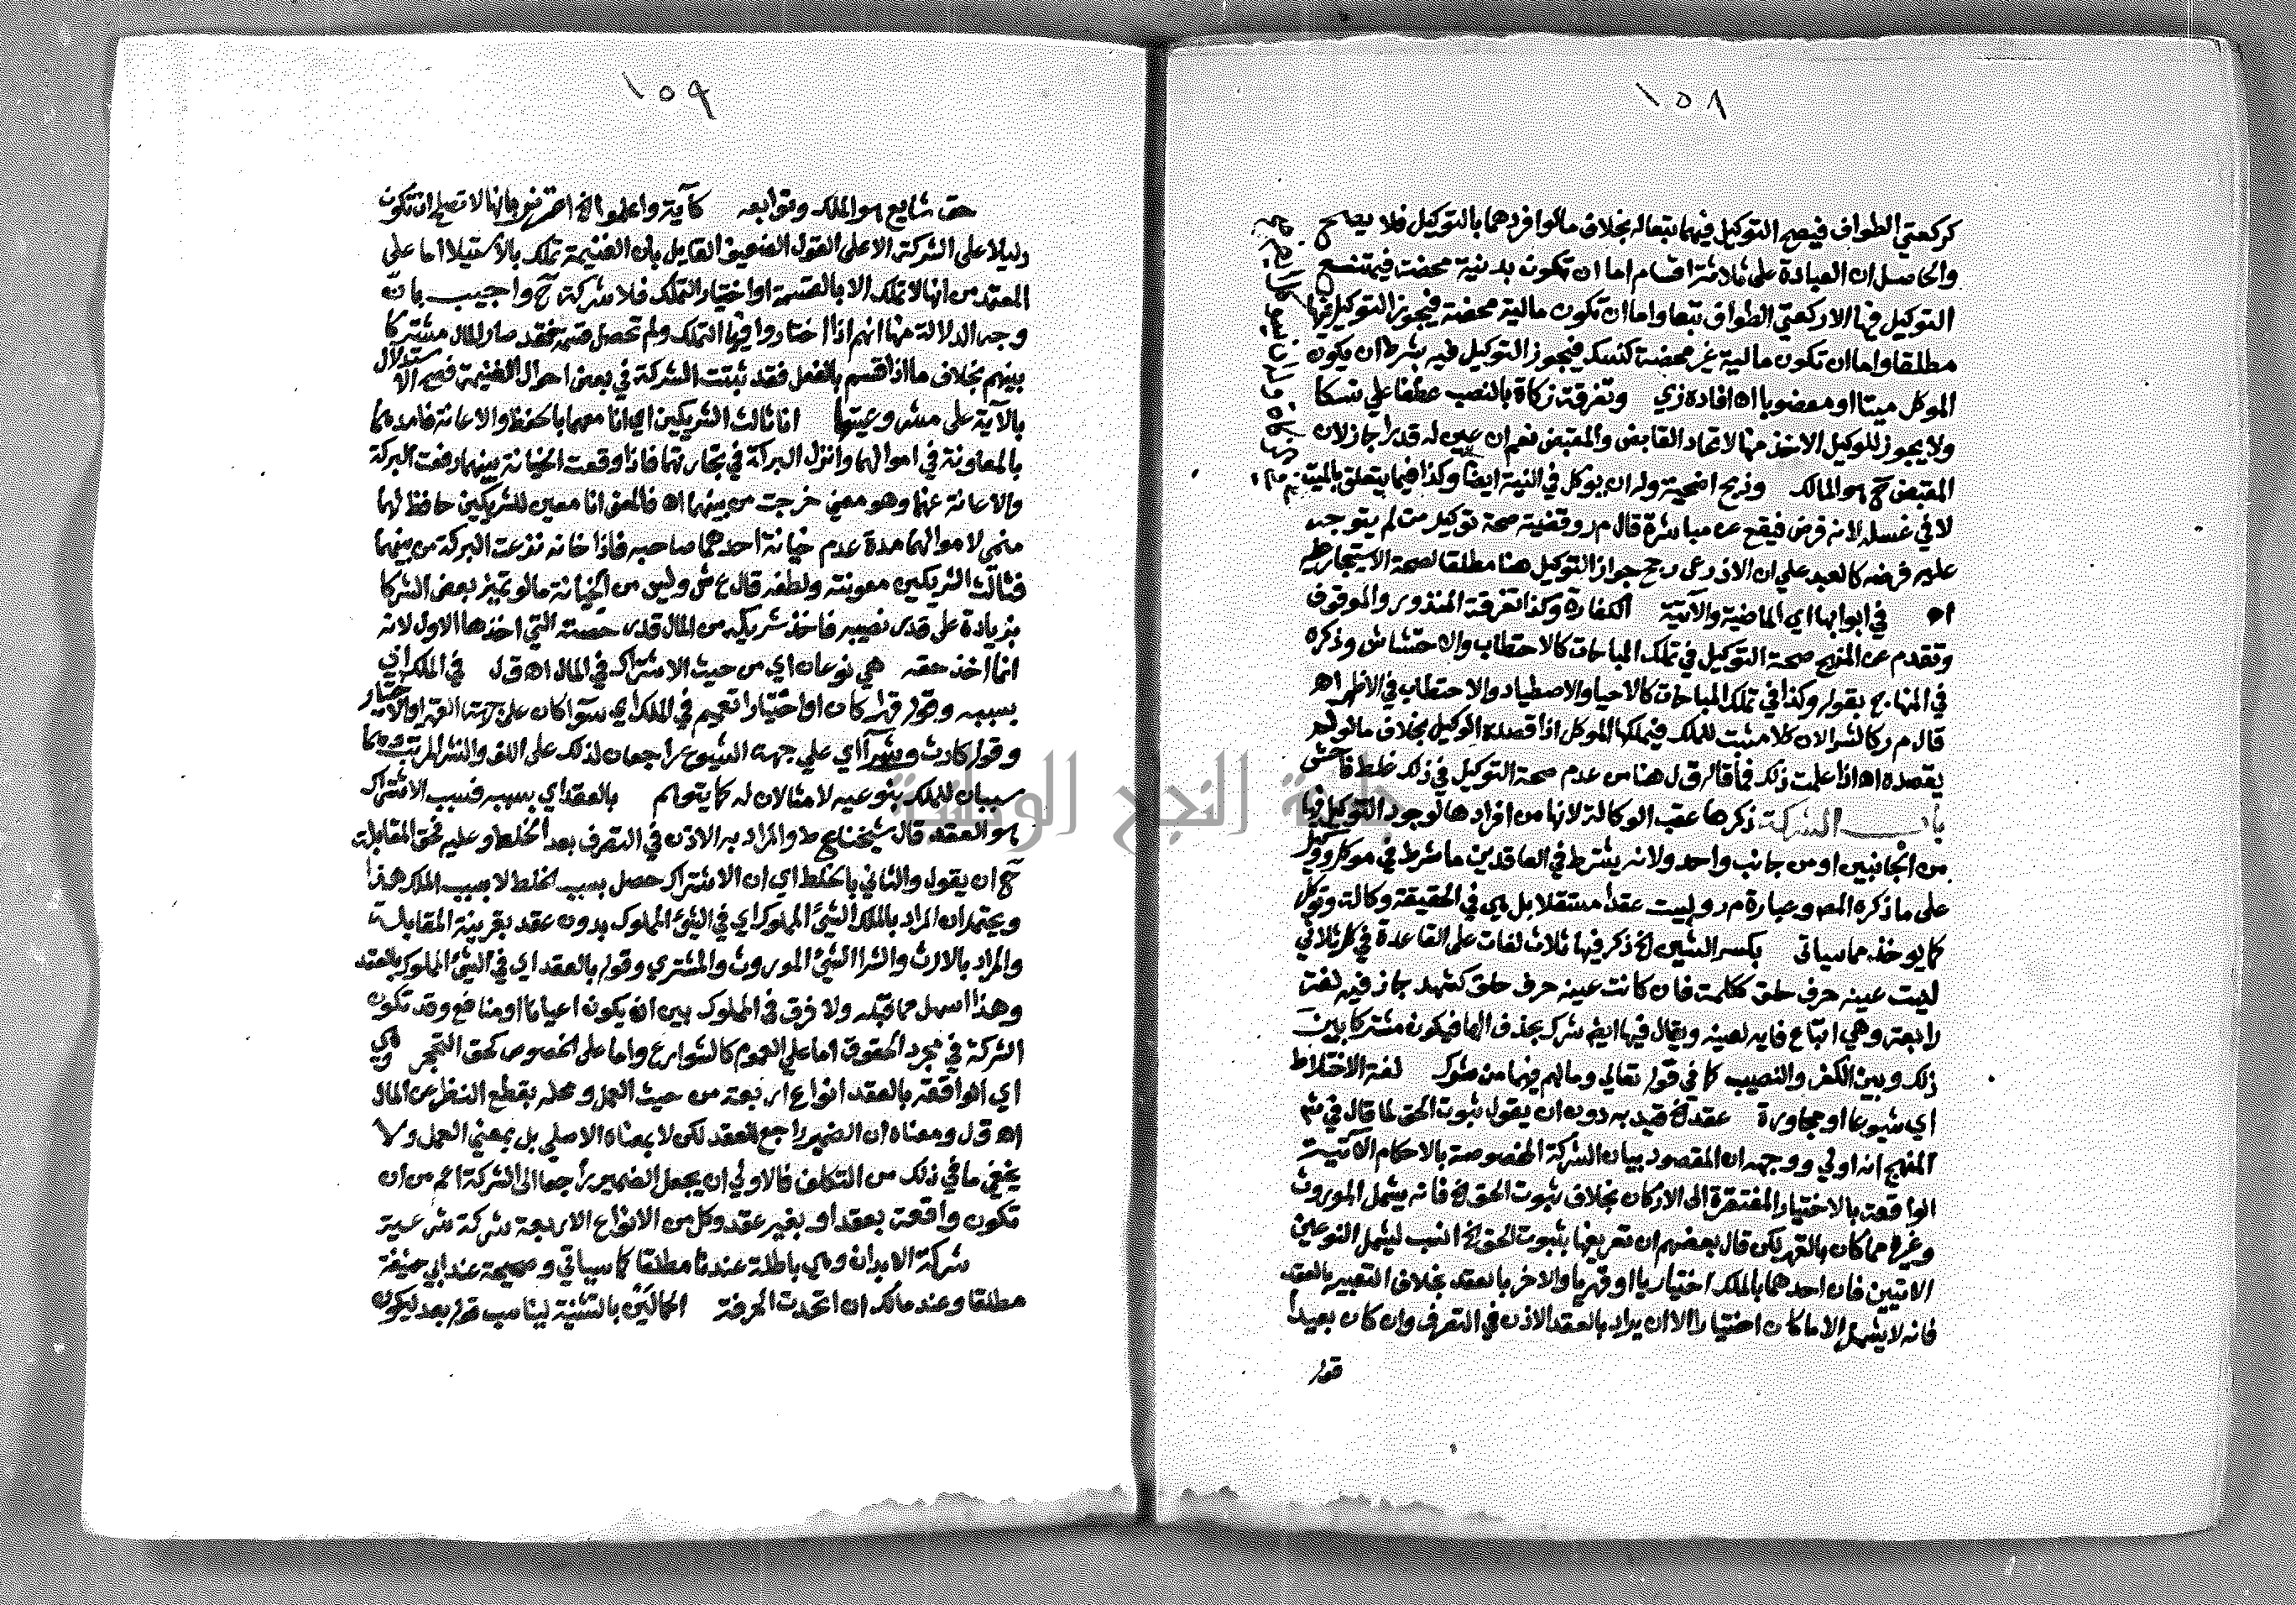 ١٥٨
كركعتي الطواف فيصح التوكيل فيهما تبعا له بخلاف ما لو افردهما بالتوكيل فلا يصح
والحاصل ان العبادة على ثلاثة اقسام اما ان تكون بدنية محضة فيمتنع
التوكيل فيها الا ركعتي الطواف تبعا واما ان تكون مالية محضة فيجوز التوكيل فيها
مطلقا واما ان تكون مالية غير محضة كنسك فيجوز التوكيل فيه بشرط ان يكون
الموكل ميتا او معضوبا اه افاده زي وتفرقة زكاة بالنصب عطفا علي نسكا
ولا يجوز للوكيل الاخذ منها لاتحاد القابض والمقبض نعم ان عين له قدرا جاز لان
المقبض ح هو المالك وذبح اضحية وله ان يوكل في النية ايضا وكذا فيما يتعلق بالميت
لا في غسله لانه فرض فيقع عن مباشره قال م ر وقضيته صحة توكيل من لم يتوجه
عليه فرضه كالعبد علي ان الاذرعي رجح جواز التوكيل هنا مطلقا لصحة الاستيجار عليه
اه في ابوابها اي الماضية والآتية الكفارة وكذا تفرقة المنذور والموقوف
وتقدم عن المنهج صحة التوكيل في تملك المباحات كالاحتطاب والاحتشاش وذكره
في المنهاج بقوله وكذا في تملك المباحات كالاحيا والاصطياد والاحتطاب في الاظهر اه
قال م ر كالشرا لان كلا مثبت للملك فيملكها الموكل اذا قصده الوكيل بخلاف ما لو لم
يقصده اه اذا علمت ذلك فما قاله ق ل هنا من عدم صحة التوكيل في ذلك غلط فاحش
باب الشركة ذكرها عقب الوكالة لانها من افرادها لوجود التوكيل فيها
من الجانبين او من جانب واحد ولانه يشترط في العاقدين ما شرط في موكل ووكيل
على ما ذكره المص وعبارة م ر وليست عقدا مستقلا بل هي في الحقيقة وكالة وتوكل
كما يوخذ مما سياتي بكسر الشين الخ ذكر فيها ثلاث لغات على القاعدة في كل ثلاثي
ليست عينه حرف حلق ككلمة فان كانت عينه حرف حلق كشهد جاز فيه لغة
رابعة وهي اتباع فايه لعينه ويقال فيها ايضا شرك بحذف الها فيكون مشتركا بين
ذلك وبين الكفر والنصيب كما في قوله تعالي وما لهم فيهما من شرك لغة الاختلاط
اي شيوعا او مجاورة عقد الخ قيد به دون ان يقول ثبوت الحق لما قال في شم
المنهج انه اولي ووجهه ان المقصود بيان الشركة المخصوصة بالاحكام الآتية
الواقعة بالاختيار المفتقرة الى الاركان بخلاف ثبوت الحق الخ فانه يشمل الموروث
وغيره مما كان بالقهر لكن قال بعضهم ان تعريفها بثبوت الحق الخ انسب ليشمل النوعين
الاتيين فان احدهما بالملك اختياريا او قهريا والاخر بالعقد بخلاف التعبير بالعقد
فانه لا يشمل الا ما كان اختيارا الا ان يراد بالعقد الاذن في التصرف وان كان بعيدا
قوله
١٥٩
حق شايع هو الملك وتوابعه كآية واعلموا الخ اعترض بانها لا تصلح ان تكون
دليلا على الشركة الا على القول الضعيف القايل بان الغنيمة تملك بالاستيلا اما على
المعتمد من انها لا تملك الا بالقسمة او اختيار التملك فلا شركة ح واجيب بان
وجه الدلالة منها انهم اذا اختاروا فيها التملك ولم تحصل قسمة فقد صار المال مشتركا
بينهم بخلاف ما اذا قسم بالفعل فقد ثبتت الشركة في بعض احوال الغنيمة فصح الاستدلال
بالآية على مشروعيتها انا ثالث الشريكين اي انا معهما بالحفظ والاعانة فامدهما
بالمعاونة في اموالهما وانزل البركة في تجارتهما فاذا وقعت الخيانة بينهما رفعت البركة
والاعانة عنهما وهو معني خرجت من بينهما اه فالمعني انا معين للشريكين حافظ لهما
منمي لاموالهما مدة عدم خيانة احدهما صاحبه فاذا خانه نزعت البركة من بينهما
فثالث الشريكين معونته ولطفه قال ع ش وليس من الخيانة ما لو تميز بعض الشركا
بزيادة على قدر نصيبه فاخذ شريكه من المال قدر حصته التي اخذها الاول لانه
انما اخذ حقه هي نوعان اي من حيث الاشتراك في المال اه ق ل في الملك اي
بسببه وقوله قهرا كان او اختيارا تعميم في الملك اي سوآ كان على جهة القهر او الاختيار
وقوله كارث وشرآ اي علي جهة الشيوع راجعان لذلك على اللف والنشر المرتب وهما
سببان للملك بنوعيه لا مثالان له كما يتوهم بالعقد اي بسببه فسبب الاشتراك
هو العقد قال شيخنا ع ط والمراد به الاذن في التصرف بعد الخلط وعليه فحق المقابلة
ح ان يقول والثاني بالخلط اي ان الاشتراك حصل بسبب الخلط لا بسبب الملك هذا
ويحتمل ان المراد بالملك الشئ المملوك اي في الشئ المملوك بدون عقد بقرينة المقابلة
والمراد بالارث والشرا الشئ الموروث والمشتري وقوله بالعقد اي في الشئ المملوك بالعقد
وهذا اسهل مما قبله ولا فرق في المملوك بين ان يكون اعيانا او منافع وقد تكون
الشركة في مجرد الحقوق اما علي العموم كالشوارع واما على الخصوص كحق التحجر وهي
اي الواقعة بالعقد انواع اربعة من حيث العمل ومحله بقطع النظر عن المال
اه ق ل ومعناه ان الضمير راجع للعقد لكن لا بمعناه الاصلي بل بمعني العمل ولا
يخفي ما في ذلك من التكلف فالاولي ان يجعل الضمير راجعا الى الشركة اعم من ان
تكون واقعة بعقد او بغير عقد وكل من الانواع الاربعة شركة شرعية
شركة الابدان وهي باطلة عندنا مطلقا كما سياتي وصحيحة عند ابي حنيفة
مطلقا وعند مالك ان اتحدت الحرفة الحمالين بالتثنية ليناسب قوله بعد ليكون